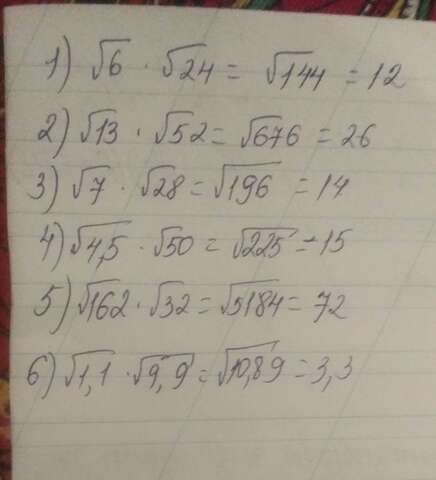 1) √6 · √24 = √144 = 12
2) √13 · √52 = √676 = 26
3) √7 · √28 = √196 = 14
4) √4,5 · √50 = √225 = 15
5) √162 · √32 = √5184 = 72
6) √1,1 · √9,9 = √10,89 = 3,3